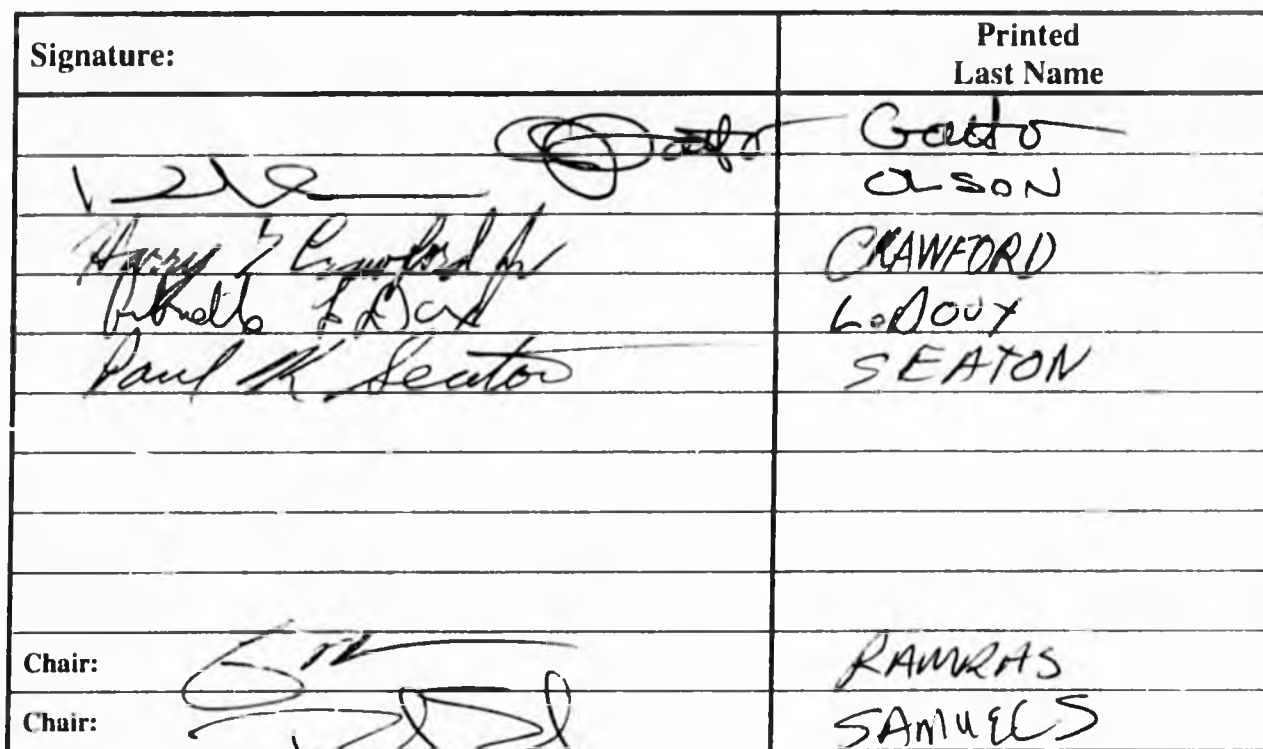 Signature: Printed
Last Name
Gatto
OLSON
Harry T Crawford Jr CRAWFORD
Gabrielle LeDoux LeDOUX
Paul K Seaton SEATON
Chair: RAMRAS
Chair: SAMUELS